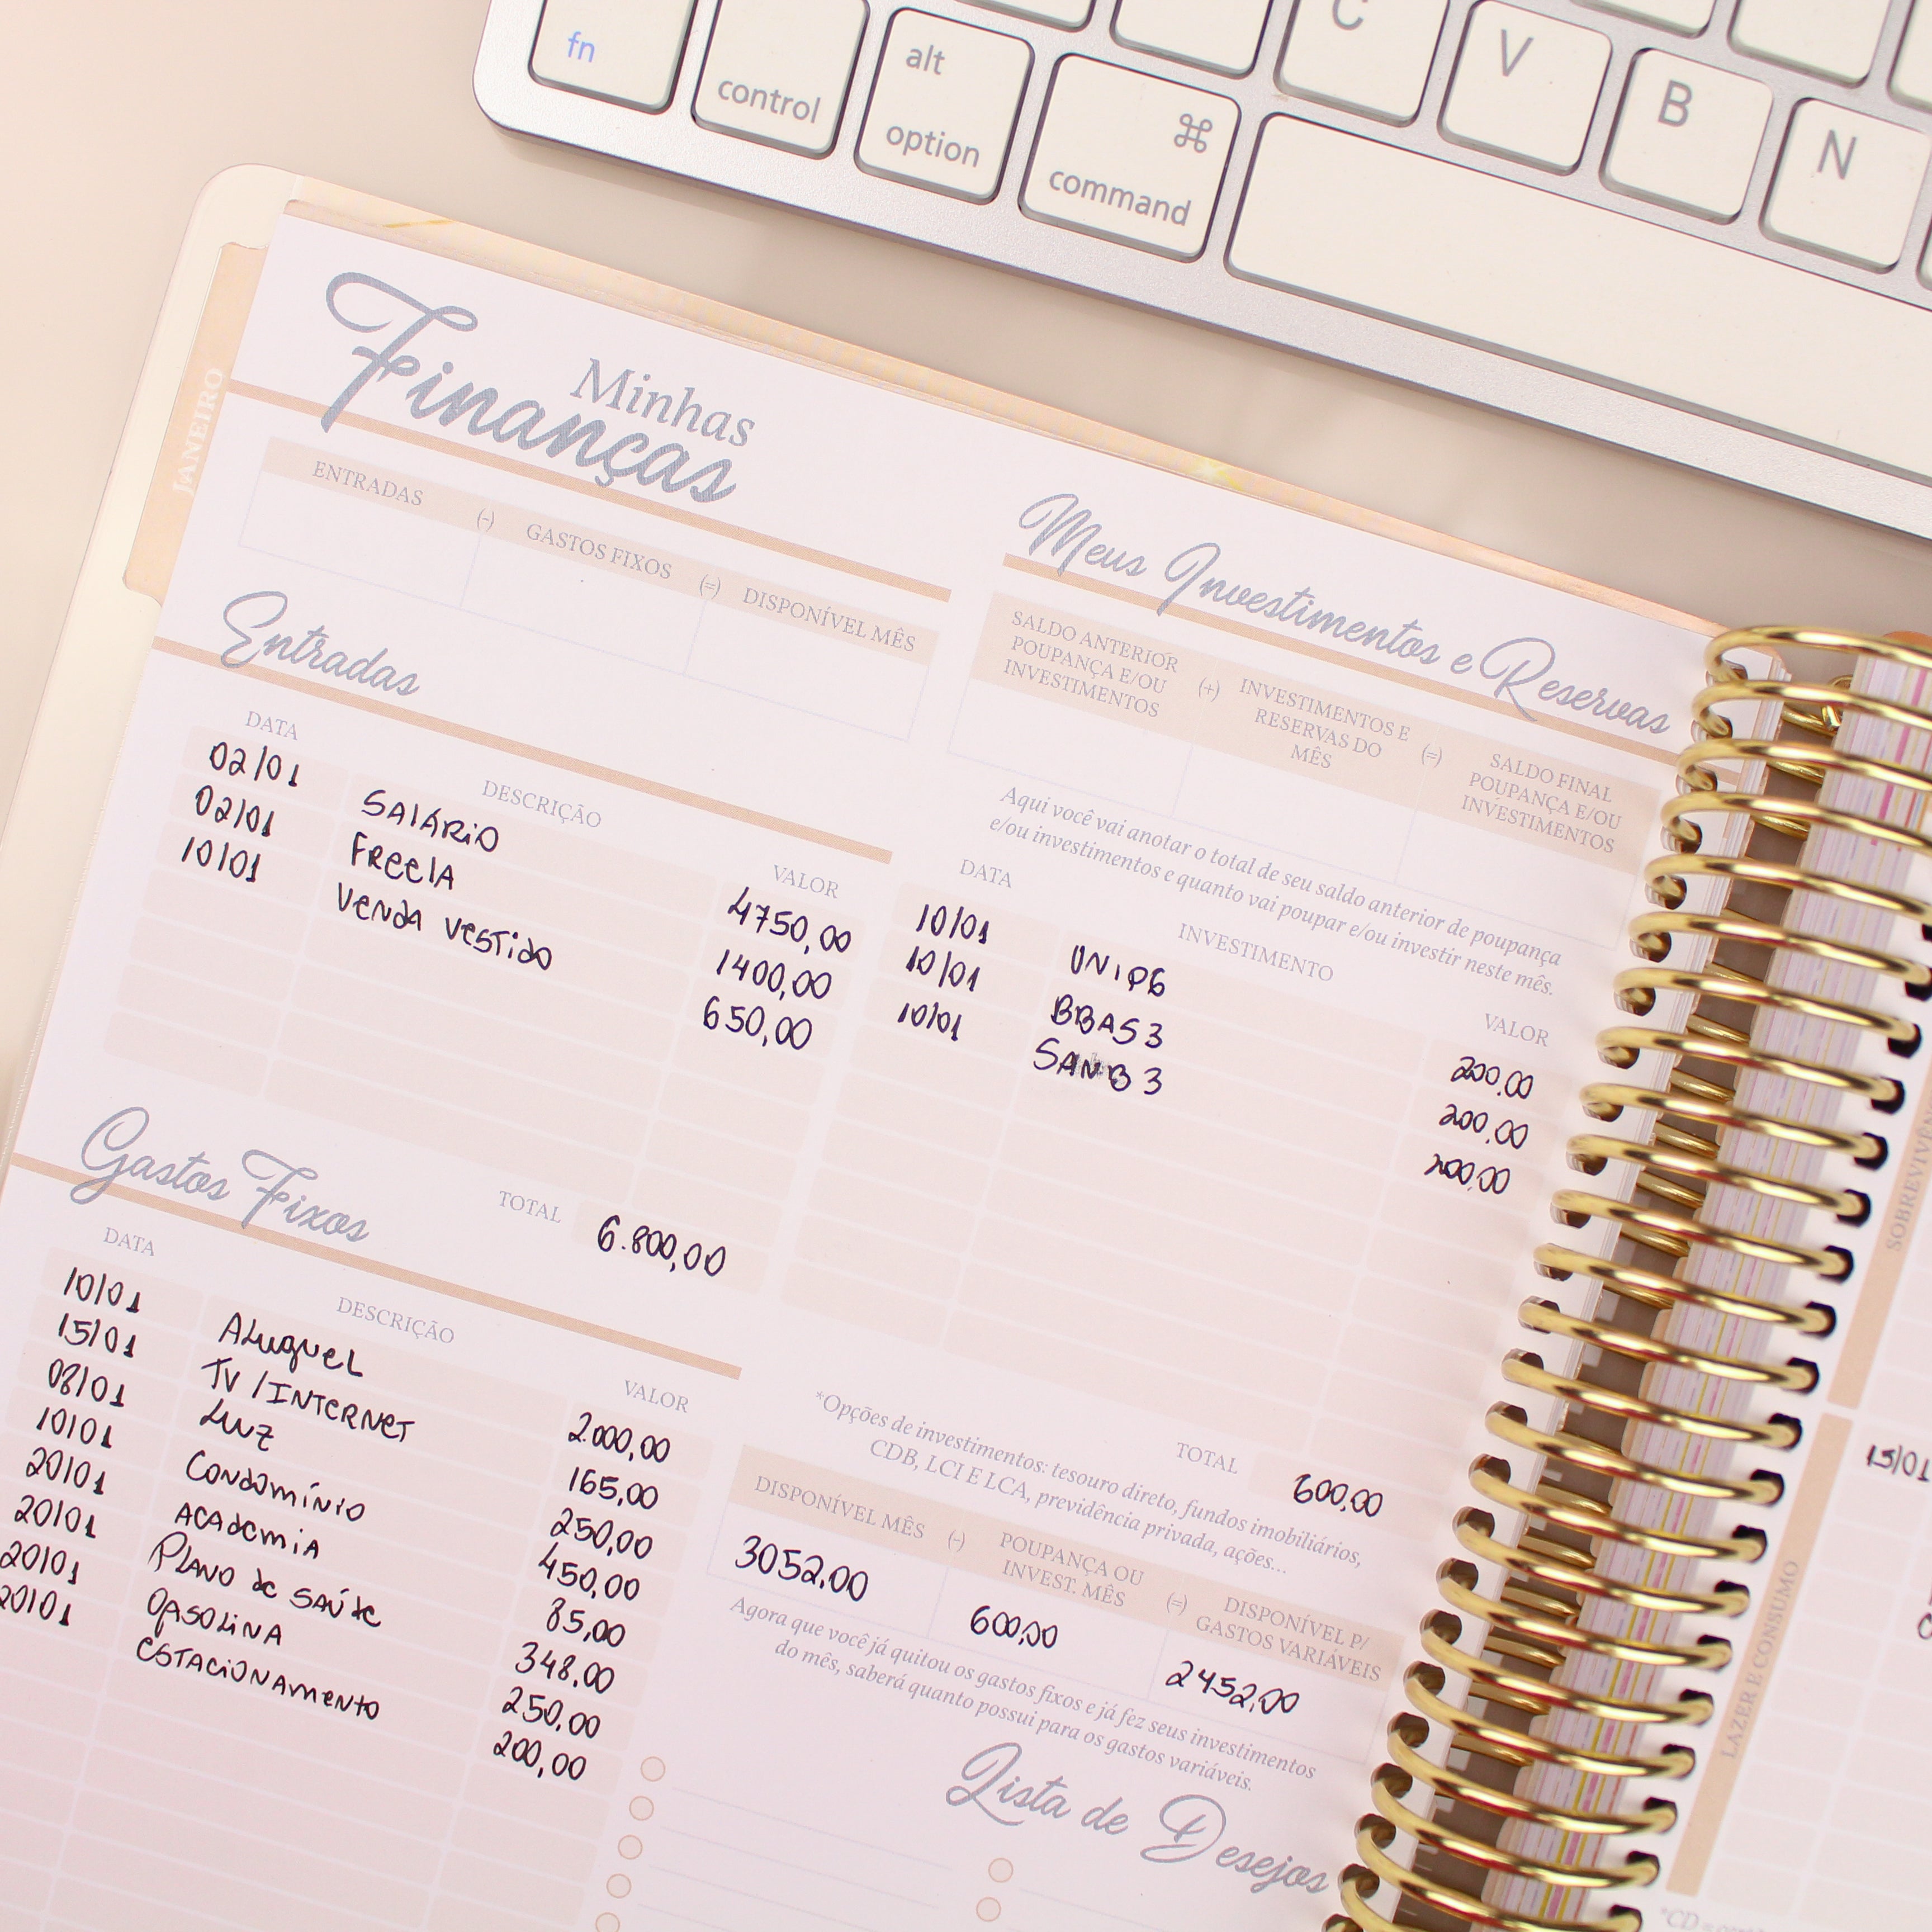 fn
control
alt
option
⌘
command
C
V
B
N
JANEIRO
Minhas
Finanças
ENTRADAS (-) GASTOS FIXOS (=) DISPONÍVEL MÊS
Entradas
DATA DESCRIÇÃO VALOR
02/01 SALÁRIO 4750,00
02/01 FREELA 1400,00
10/01 VENDA VESTIDO 650,00
TOTAL 6.800,00
Gastos Fixos
DATA DESCRIÇÃO VALOR
10/01 ALUGUEL 2.000,00
15/01 TV / INTERNET 165,00
08/01 LUZ 250,00
10/01 CONDOMÍNIO 450,00
20/01 ACADEMIA 85,00
20/01 PLANO de SAÚde 348,00
20/01 GASOLINA 250,00
20/01 ESTACIONAMENTO 200,00
Meus Investimentos e Reservas
SALDO ANTERIOR
POUPANÇA E/OU
INVESTIMENTOS
(+)
INVESTIMENTOS E
RESERVAS DO
MÊS
(=)
SALDO FINAL
POUPANÇA E/OU
INVESTIMENTOS
Aqui você vai anotar o total de seu saldo anterior de poupança
e/ou investimentos e quanto vai poupar e/ou investir neste mês.
DATA INVESTIMENTO VALOR
10/01 UNIP6 200,00
10/01 BBAS3 200,00
10/01 SANB3 200,00
TOTAL 600,00
*Opções de investimentos: tesouro direto, fundos imobiliários,
CDB, LCI E LCA, previdência privada, ações...
DISPONÍVEL MÊS
(-)
POUPANÇA OU
INVEST. MÊS
(=)
DISPONÍVEL P/
GASTOS VARIÁVEIS
3052,00 600,00 2452,00
Agora que você já quitou os gastos fixos e já fez seus investimentos
do mês, saberá quanto possui para os gastos variáveis.
Lista de Desejos
LAZER E CONSUMO
15/01